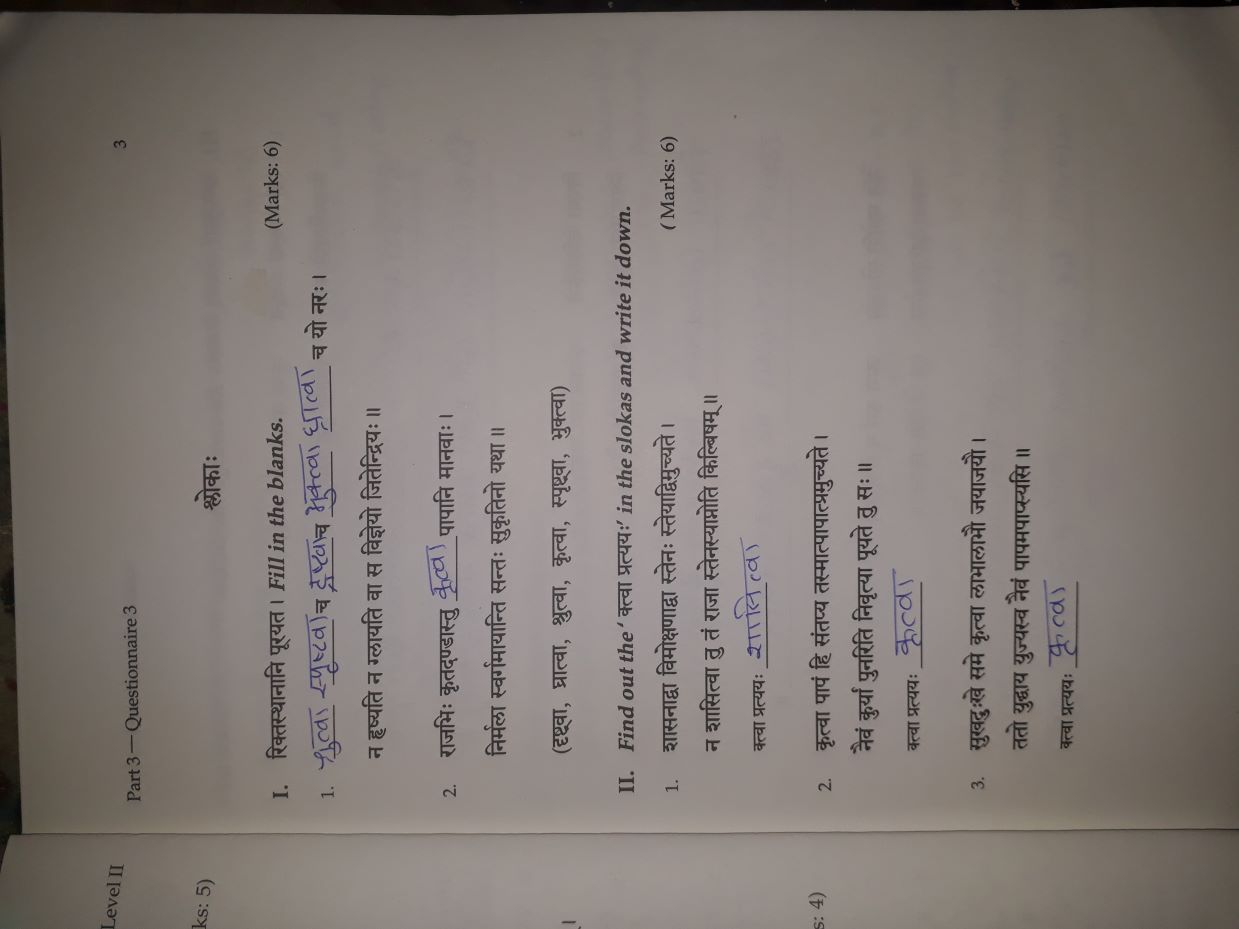 Level II
Part 3 — Questionnaire 3
3
ks: 5)
श्लोकाः
I. रिक्तस्थानानि पूरयत । Fill in the blanks. (Marks: 6)
1. श्रुत्वा स्पृष्टवा च द्रष्टवा च भुक्त्वा घ्रात्वा च यो नरः ।
न हृष्यति न ग्लायति वा स विज्ञेयो जितेन्द्रियः ॥
2. राजभिः कृतदण्डास्तु कृत्वा पापानि मानवाः ।
निर्मला स्वर्गमायान्ति सन्तः सुकृतिनो यथा ॥
(दृष्ट्वा, घ्रात्वा, श्रुत्वा, कृत्वा, स्पृष्ट्वा, भुक्त्वा)
।
II. Find out the ‘ क्त्वा प्रत्ययः’ in the slokas and write it down.
1. शासनाद्वा विमोक्षणाद्वा स्तेनः स्तेयाद्विमुच्यते । ( Marks: 6)
न शासित्वा तु तं राजा स्तेनस्याप्नोति किल्बिषम् ॥
क्त्वा प्रत्ययः शासित्वा
s: 4)
2. कृत्वा पापं हि संतप्य तस्मात्पापात्प्रमुच्यते ।
नैवं कुर्यां पुनरिति निवृत्या पूयते तु सः ॥
क्त्वा प्रत्ययः कृत्वा
3. सुखदुःखे समे कृत्वा लाभालाभौ जयाजयौ ।
ततो युद्धाय युज्यस्व नैवं पापमपाप्स्यसि ॥
क्त्वा प्रत्ययः कृत्वा